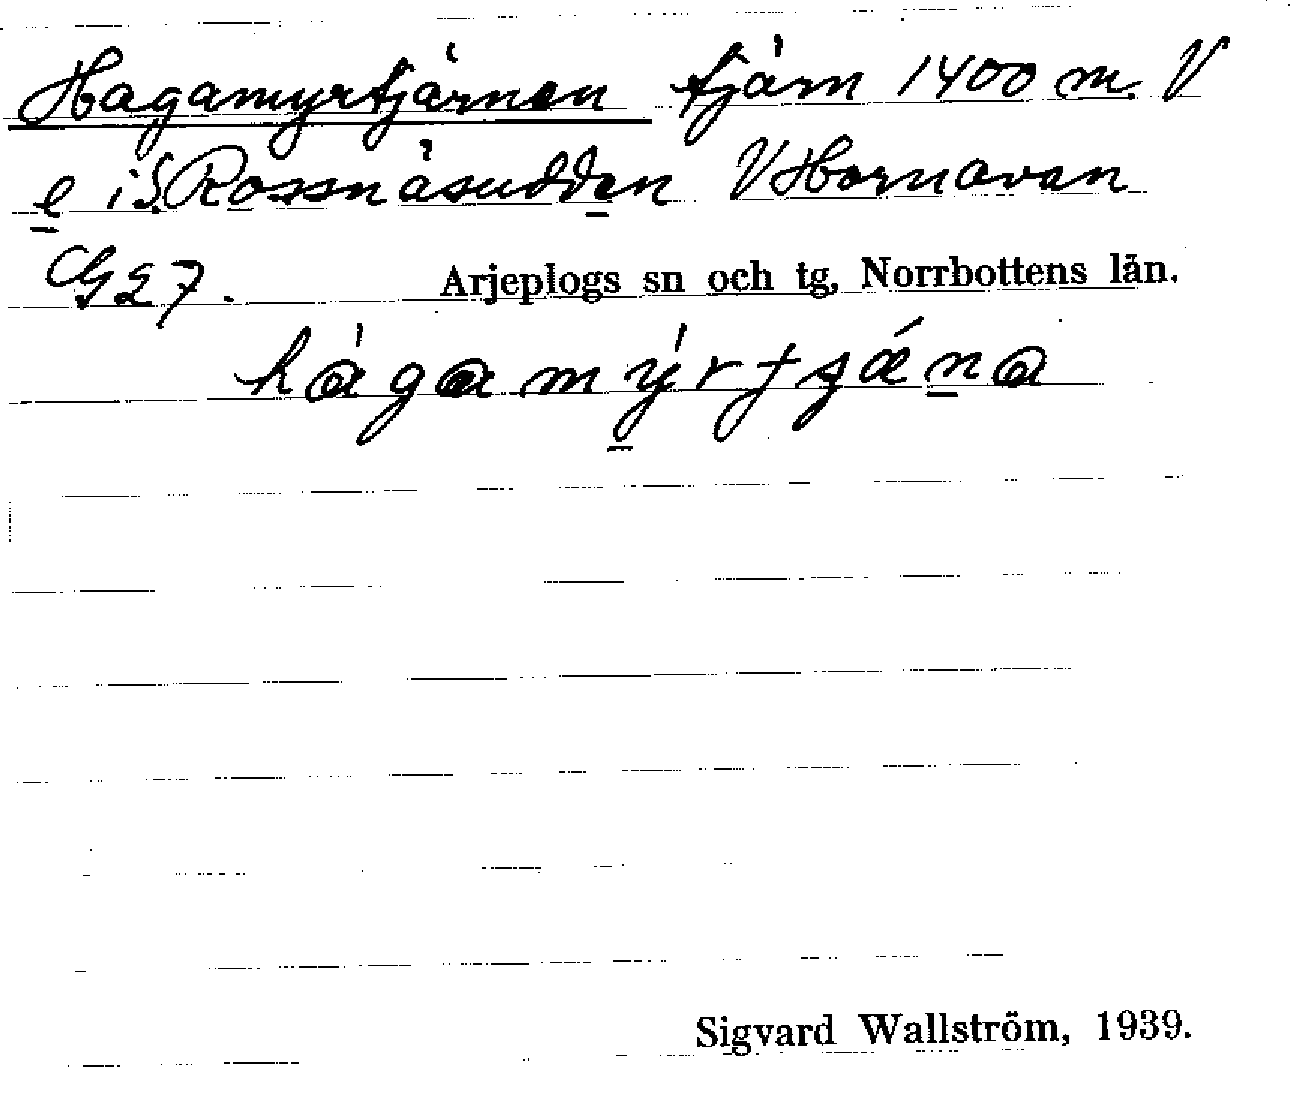 Hagamyrtjärnen tjärn 1400 m. V
e i S. Rossnäsudden V Hornavan
G27. Arjeplogs sn och tg, Norrbottens län.
hágamýrtʂǽna
Sigvard Wallström, 1939.